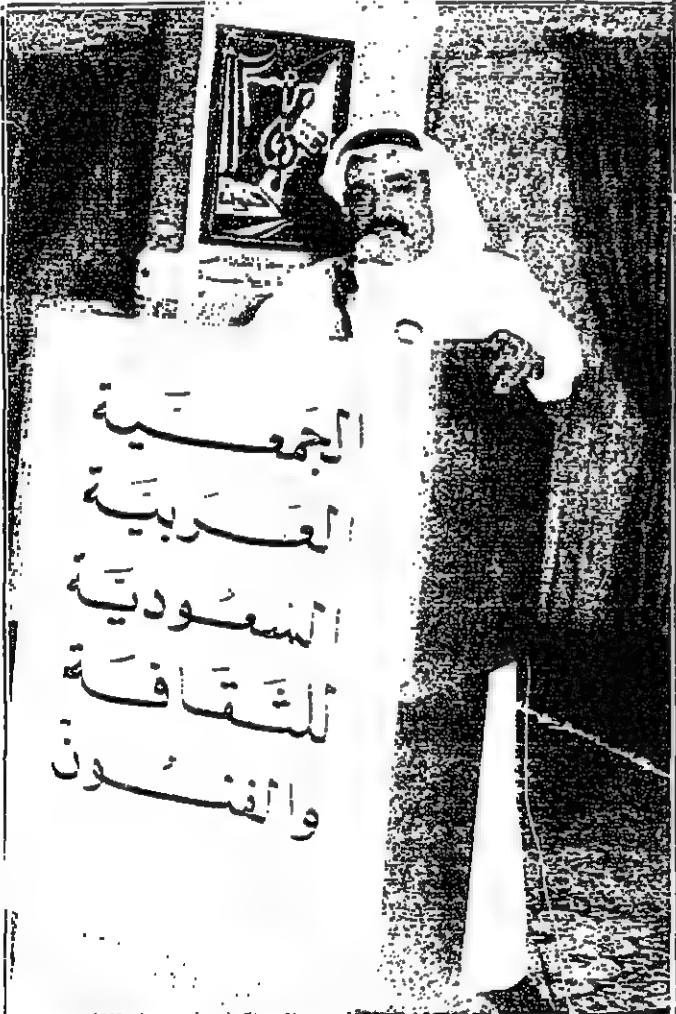 الجمعية
العربية
السعودية
للثقافة
والفنون